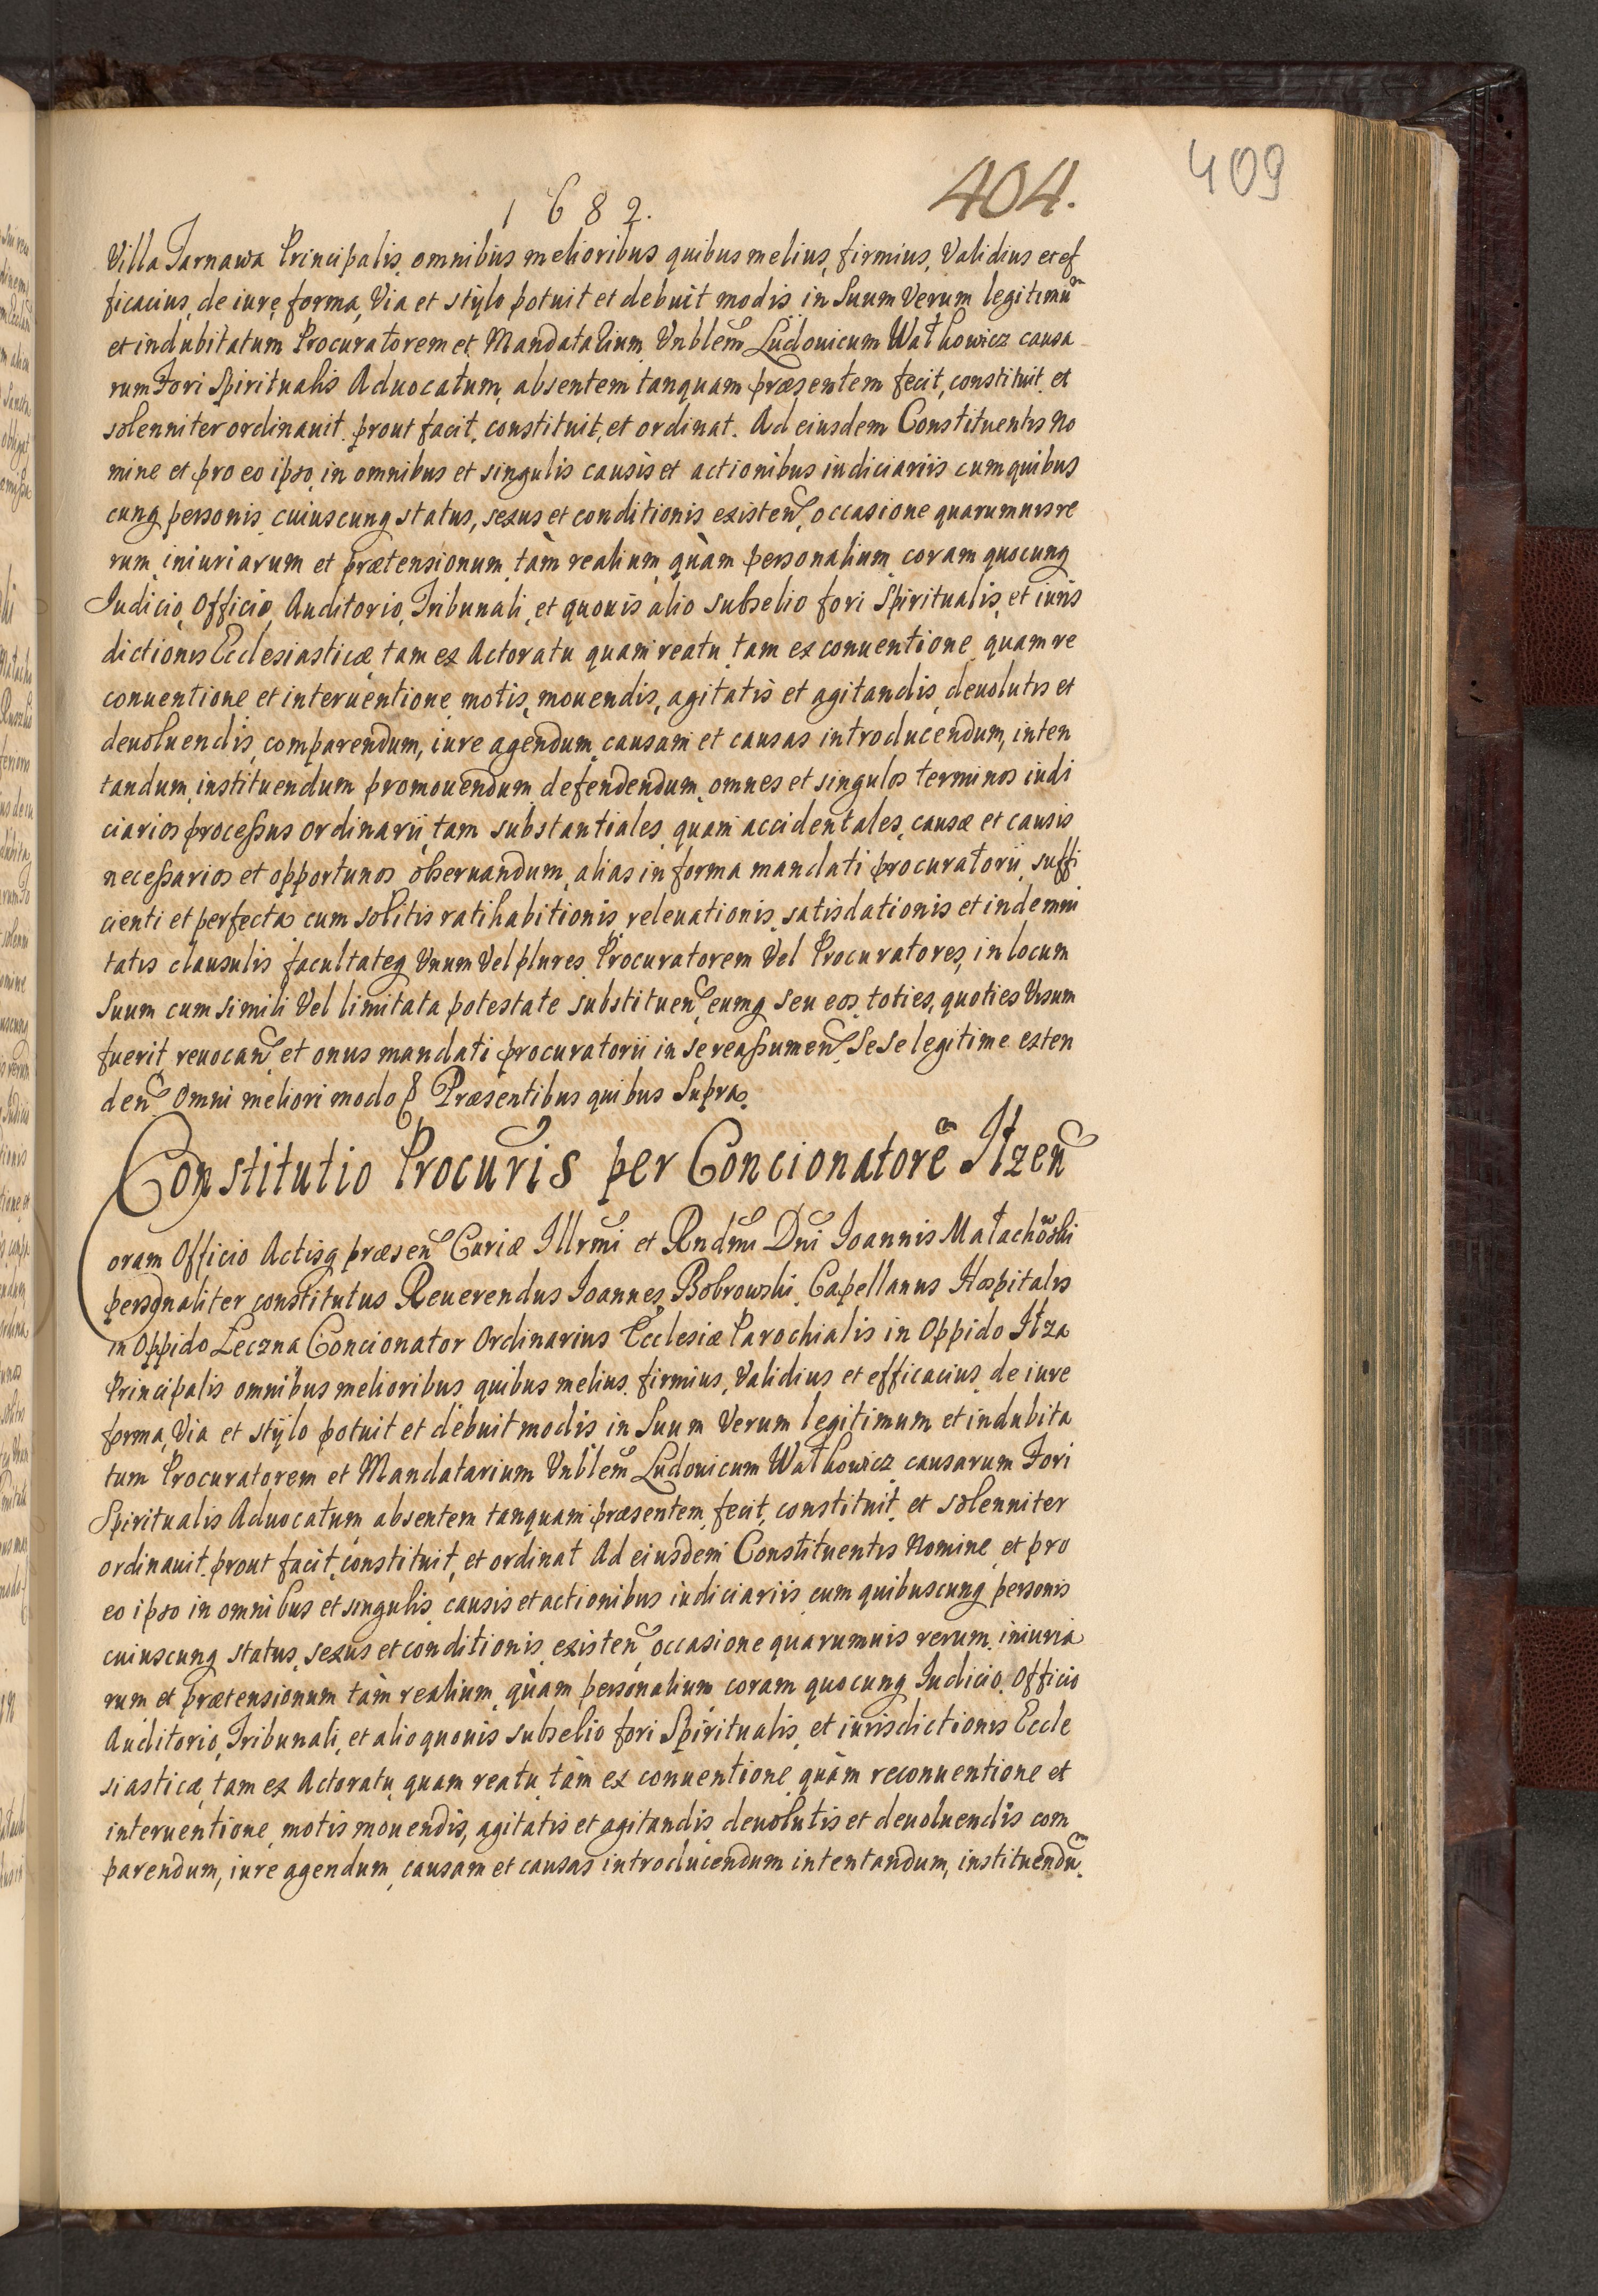 409
404.
1682.
Villa Tarnawa Principalis, omnibus melioribus quibus melius, firmius, Validius et ef
ficacius, de iure, forma, Via et stylo potuit et debuit modis, in Suum Verum legitimũ
et indubitatum Procuratorem et Mandatarium Vnblem̃ Ludouicum Wałkowicz causa
rum Fori Spiritualis Aduocatum, absentem tanquam præsentem fecit, constituit, et
solenniter ordinauit, prout facit, constituit, et ordinat. Ad eiusdem Constituentis No
mine et pro eo ipso, in omnibus et singulis causis et actionibus iudiciariis cum quibus
cunq personis, cuiuscunq status, sexus et conditionis existen̄, occasione quarumuis re
rum, iniuriarum et prætensionum, tàm realium, quàm personalium, coram quocunq
Iudicio, Officio, Auditorio, Tribunali, et quouis alio subselio fori Spiritualis, et iuris
dictionis Ecclesiasticæ, tam ex Actoratu quam reatu, tam ex conuentione, quam re
conuentione et interuentione, motis, mouendis, agitatis et agitandis, deuolutis et
deuoluendis, comparendum, iure agendum, causam et causas introducendum, inten
tandum, instituendum promouendum, defendendum, omnes et singulos terminos iudi
ciarios processus ordinarii, tam substantiales, quam accidentales, causæ et causis
necessarios et opportunos obseruandum, alias in forma mandati procuratorii, suffi
cienti et perfecta, cum solitis ratihabitionis, releuationis, satisdationis et indemni
tatis clausulis, facultateq Vnum Vel plures Procuratorem Vel Procuratores, in locum
Suum cum simili Vel limitata potestate substituen̄, eumq seu eos, toties, quoties Visum
fuerit, reuocan̄, et onus mandati procuratorii in se reassumen̄, sese legitime exten
den̄. Omni meliori modo & Præsentibus quibus Supra.
Constitutio Procuris per Concionatorē Iłzen̄
Coram Officio Actisq præsen̄ Curiæ Illrmi et Rndmi Dni Ioannis Małachowski
personaliter constitutus Reuerendus Ioannes Bobrowski, Capellanus Hospitalis
in Oppido Leczna Concionator Ordinarius Ecclesiæ Parochialis in Oppido Iłza
Principalis omnibus melioribus quibus melius, firmius, Validius et efficacius, de iure
forma, Via et stylo potuit et debuit modis in Suum Verum legitimum et indubita
tum Procuratorem et Mandatarium Vnblem̃ Ludouicum Wałkowicz causarum Fori
Spiritualis Aduocatum absentem tanquam præsentem, fecit, constituit, et solenniter
ordinauit, prout facit, constituit, et ordinat Ad eiusdem Constituentis Nomine, et pro
eo ipso in omnibus et singulis causis et actionibus iudiciariis cum quibuscunq personis
cuiuscunq status, sexus et conditionis existen̄, occasione quarumuis rerum, iniuria
rum et prætensionum tàm realium, quàm personalium coram quocunq Iudicio, Officio
Auditorio, Tribunali, et alio quouis subselio fori Spiritualis, et iurisdictionis Eccle
siasticæ, tam ex Actoratu, quam reatu, tàm ex conuentione, quàm reconuentione et
interuentione, motis mouendis, agitatis et agitandis deuolutis et deuoluendis com
parendum, iure agendum, causam et causas introducendum intentandum, instituendũ.